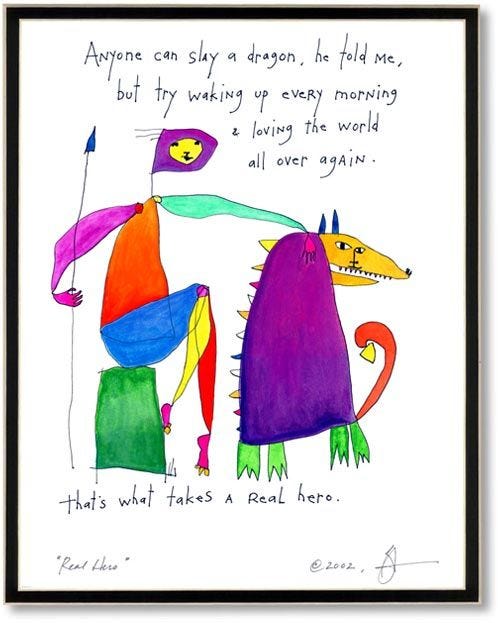 Anyone can slay a dragon, he told me,
but try waking up every morning
& loving the world
all over again.
that's what takes a real hero.
"Real Hero" ©2002,